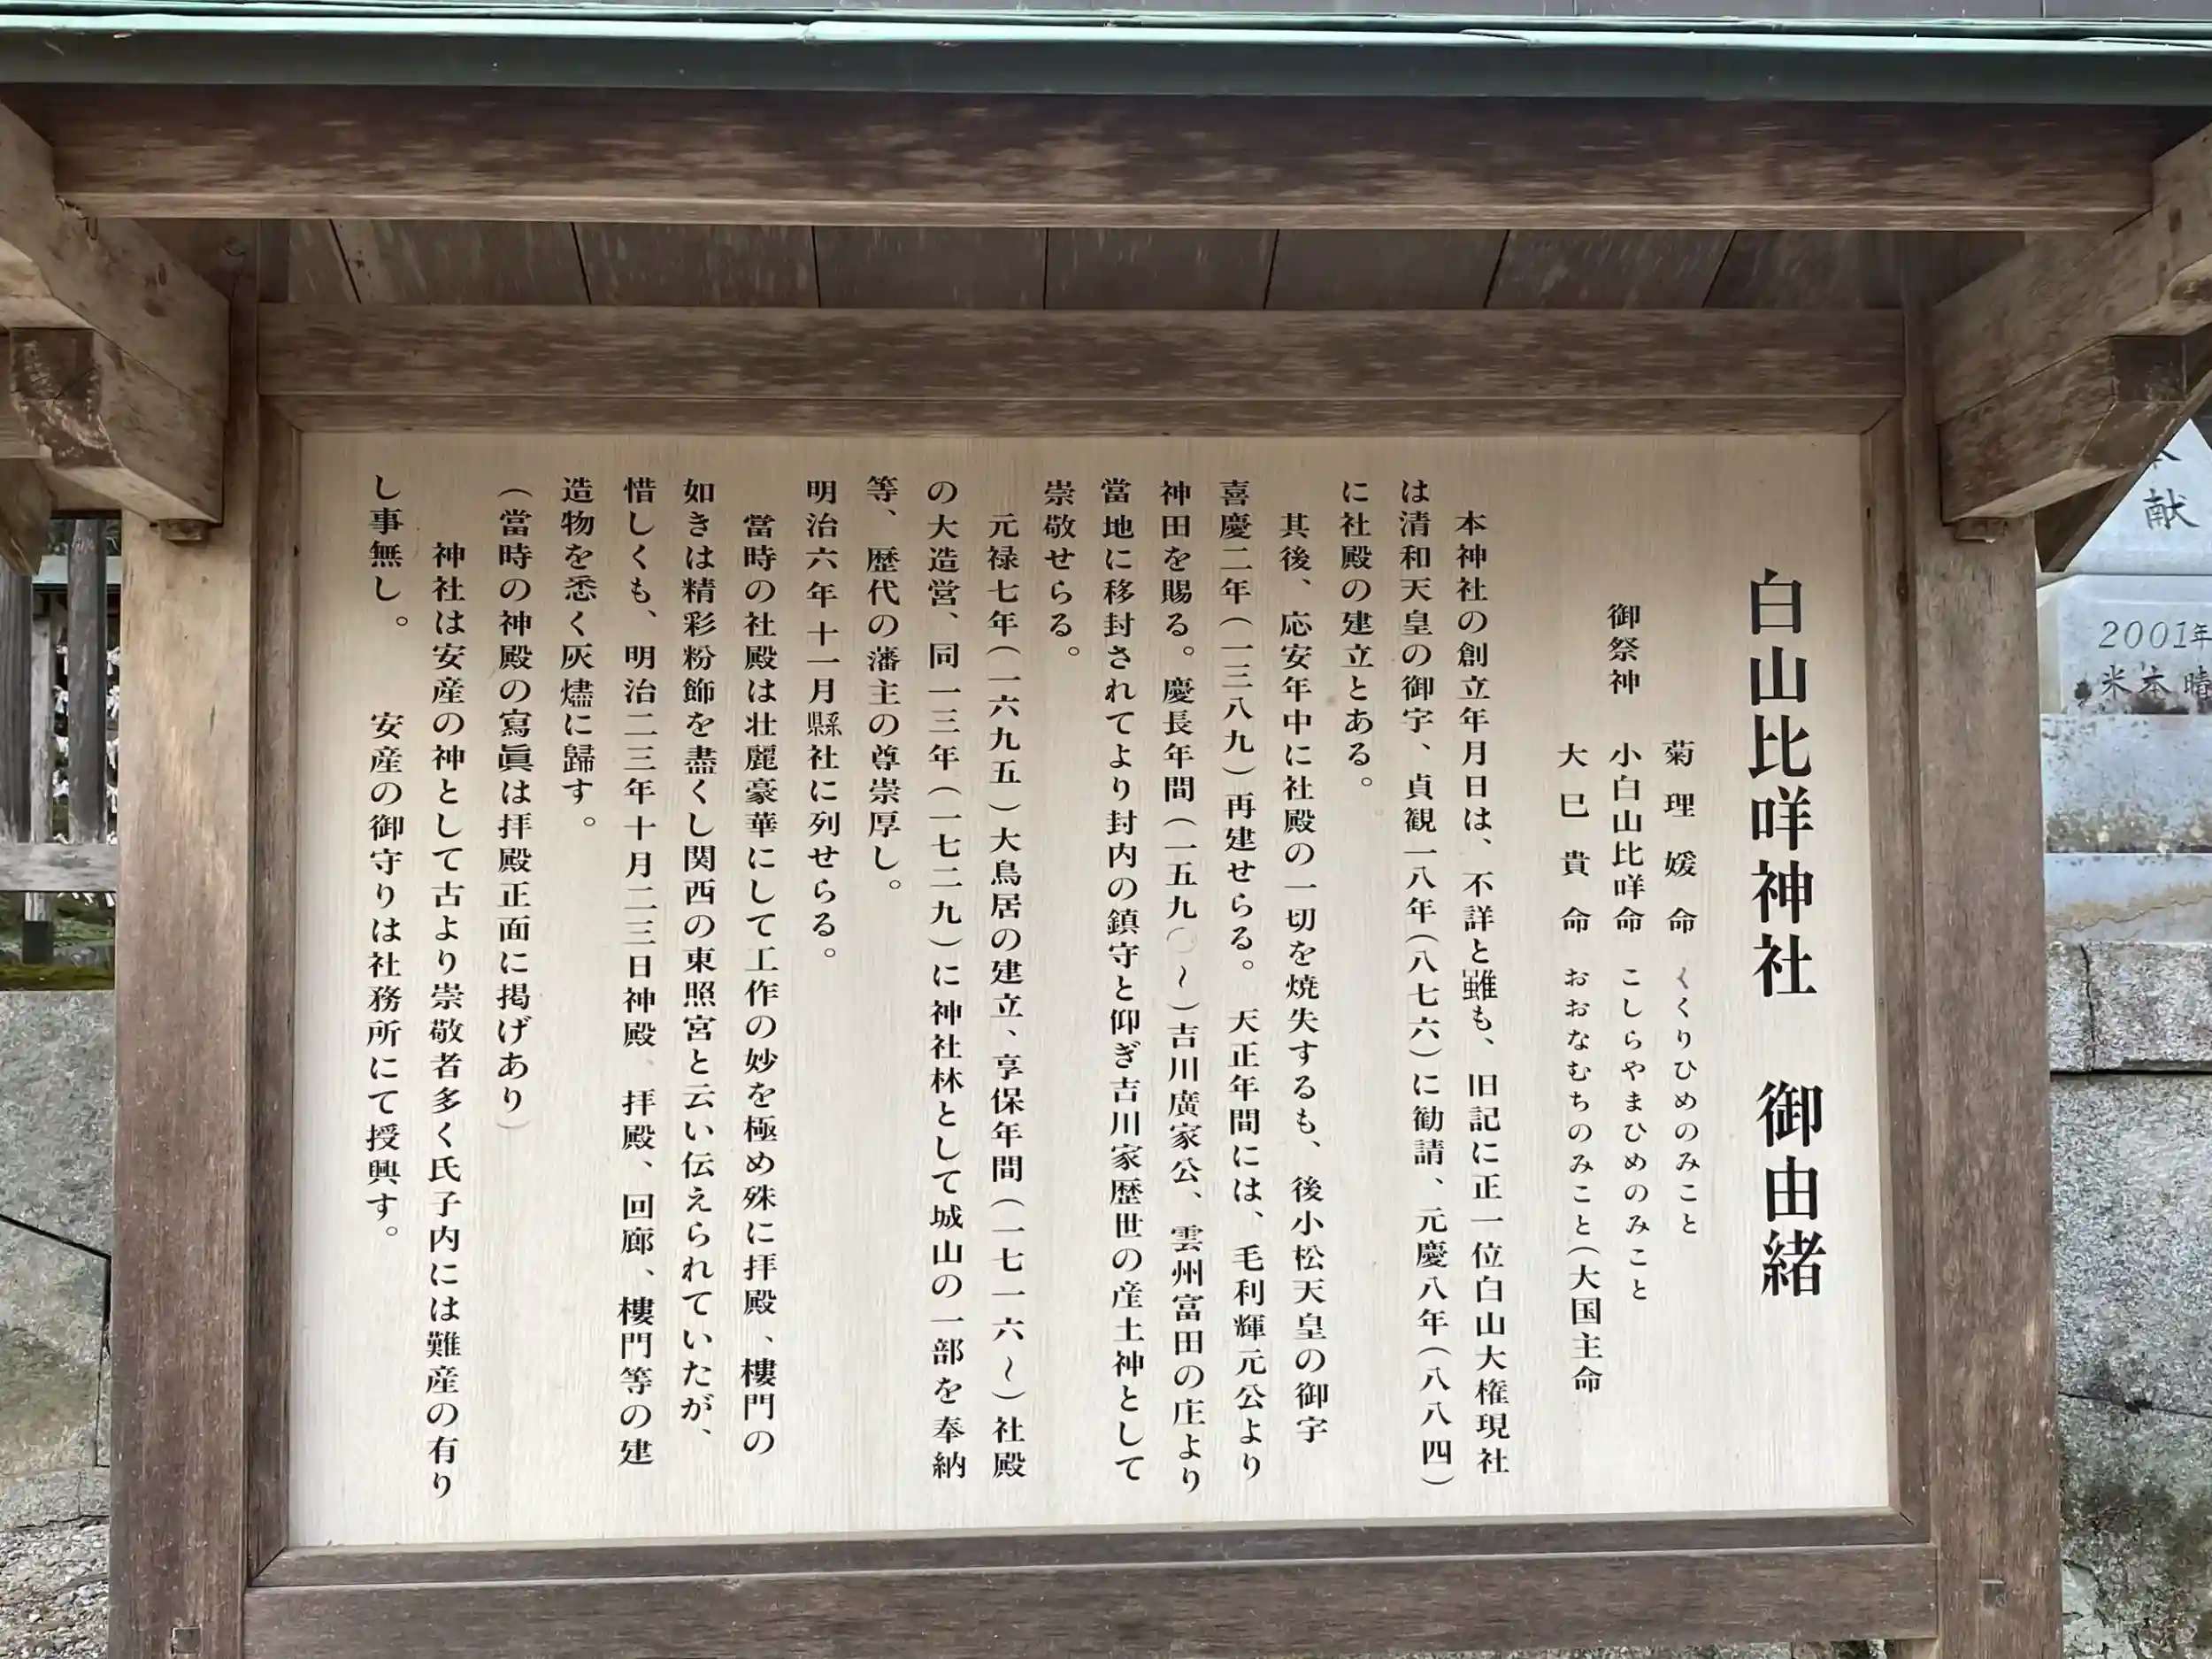 白山比咩神社　御由緒
菊理媛命　くくりひめのみこと
御祭神　小白山比咩命　こしらやまひめのみこと
大巳貴命　おおなむちのみこと(大国主命
本神社の創立年月日は、不詳と雖も、旧記に正一位白山大権現社
は清和天皇の御宇、貞観一八年(八七六)に勧請、元慶八年(八八四)
に社殿の建立とある。
其後、応安年中に社殿の一切を焼失するも、後小松天皇の御宇
喜慶二年(一三八九)再建せらる。天正年間には、毛利輝元公より
神田を賜る。慶長年間(一五九〇～)吉川廣家公、雲州富田の庄より
當地に移封されてより封内の鎮守と仰ぎ吉川家歴世の産土神として
崇敬せらる。
元禄七年(一六九五)大鳥居の建立、享保年間(一七一六～)社殿
の大造営、同一三年(一七二九)に神社林として城山の一部を奉納
等、歴代の藩主の尊崇厚し。
明治六年十一月縣社に列せらる。
當時の社殿は壮麗豪華にして工作の妙を極め殊に拝殿、樓門の
如きは精彩粉飾を盡くし関西の東照宮と云い伝えられていたが、
惜しくも、明治二三年十月二三日神殿、拝殿、回廊、樓門等の建
造物を悉く灰燼に歸す。
(當時の神殿の寫眞は拝殿正面に掲げあり)
神社は安産の神として古より崇敬者多く氏子内には難産の有り
し事無し。　安産の御守りは社務所にて授興す。
献
2001年
米本晴